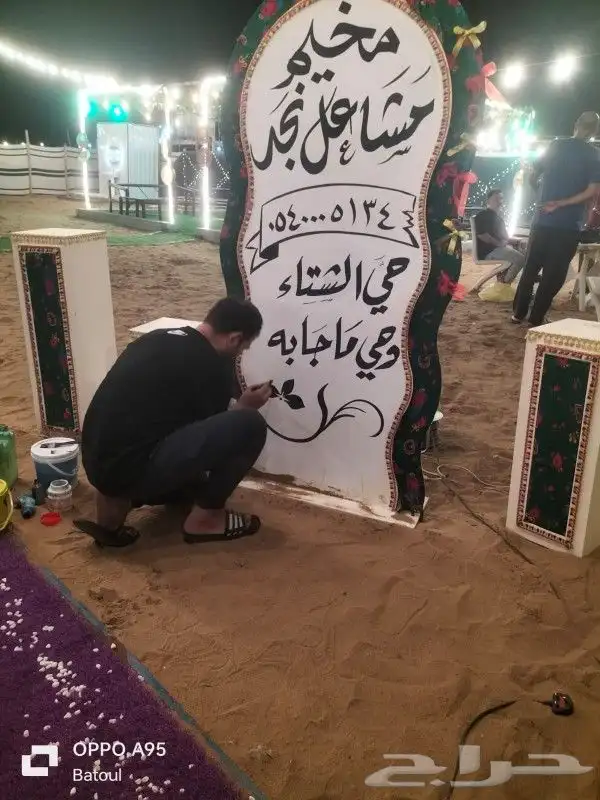 مخيم
مَشَاعل نَجَد
٠٥٤٠٠٠٥١٣٤
حَيَّ الشِتَاء
وحَي مَا جَابه
OPPO A95
Batoul
حراج